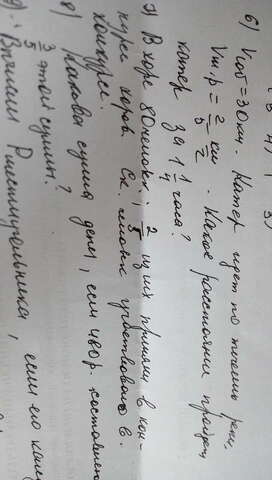 6) Vсоб = 30 км. Катер идет по течению реки.
Vт.р = 2/5 км. Какое расстояние пройдет
катер за 1 1/4 часа?
7) В хоре 80 человек; 2/5 из них приняли в кон-
курсе хоров. Ск. человек участвовало в
конкурсе.
8) Какова сумма денег, если составляет
3/5 этой суммы?
9) Вычисли, если его